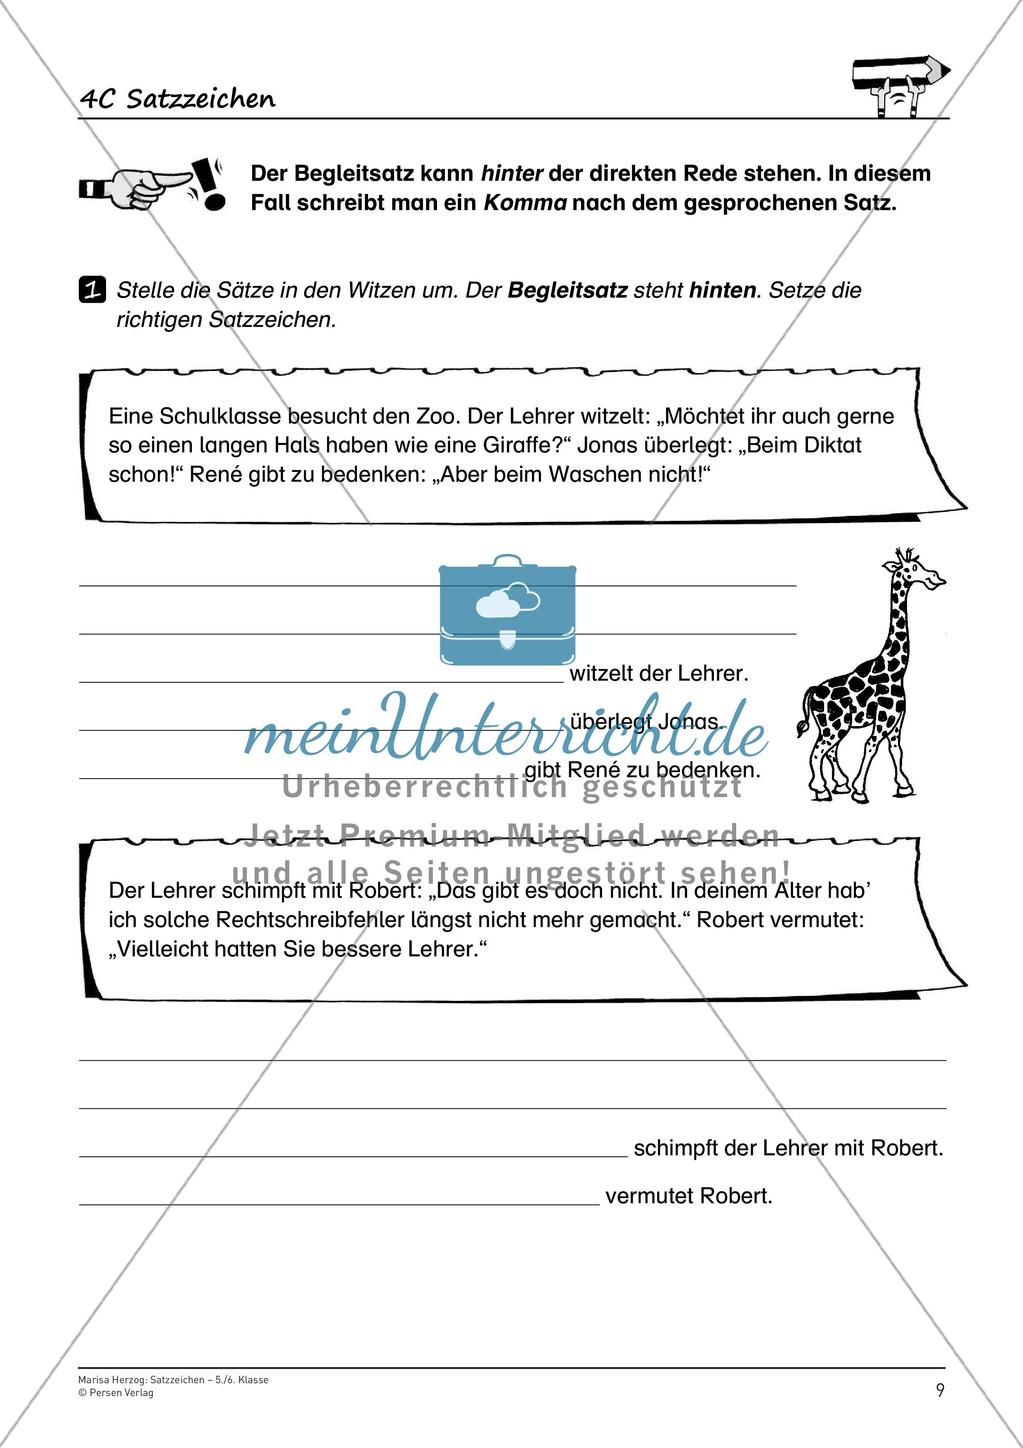 4C Satzzeichen
Der Begleitsatz kann hinter der direkten Rede stehen. In diesem
Fall schreibt man ein Komma nach dem gesprochenen Satz.
1 Stelle die Sätze in den Witzen um. Der Begleitsatz steht hinten. Setze die
richtigen Satzzeichen.
Eine Schulklasse besucht den Zoo. Der Lehrer witzelt: „Möchtet ihr auch gerne
so einen langen Hals haben wie eine Giraffe?“ Jonas überlegt: „Beim Diktat
schon!“ René gibt zu bedenken: „Aber beim Waschen nicht!“
witzelt der Lehrer.
überlegt Jonas.
meinUnterricht.de
gibt René zu bedenken.
Urheberrechtlich geschützt
Jetzt Premium-Mitglied werden
und alle Seiten ungestört sehen!
Der Lehrer schimpft mit Robert: „Das gibt es doch nicht. In deinem Alter hab’
ich solche Rechtschreibfehler längst nicht mehr gemacht.“ Robert vermutet:
„Vielleicht hatten Sie bessere Lehrer.“
schimpft der Lehrer mit Robert.
vermutet Robert.
Marisa Herzog: Satzzeichen – 5./6. Klasse
© Persen Verlag
9